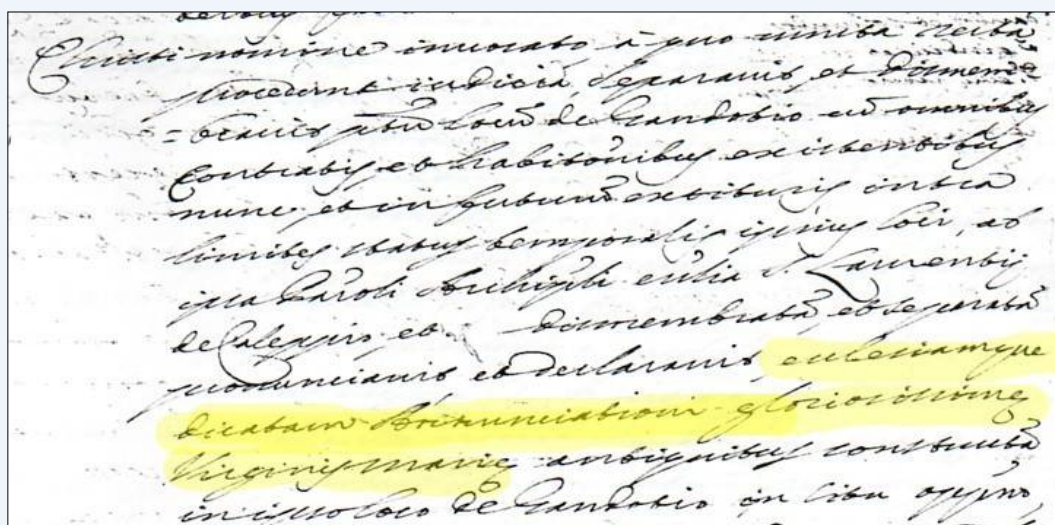 Christi nomine invocato à quo cuncta recta
procedunt iudicia, separavit, et dismem=
=bravit locũ de Gandobio cũ omnibus
contratis et habitõnibus existentibus
nunc et in futurũ extituris intra
limites status temporalis ipsius loci, ab
ipsa Paroli ecclia S. Laurentij
de Caleppio, et dismembratã, et separatã
pronunciavit, et declaravit, ecclesiamque
dicatam Annunciationi gloriosissimę
Virginis Marię antiquitus constructã
in ipso loco de Gandobio in situ